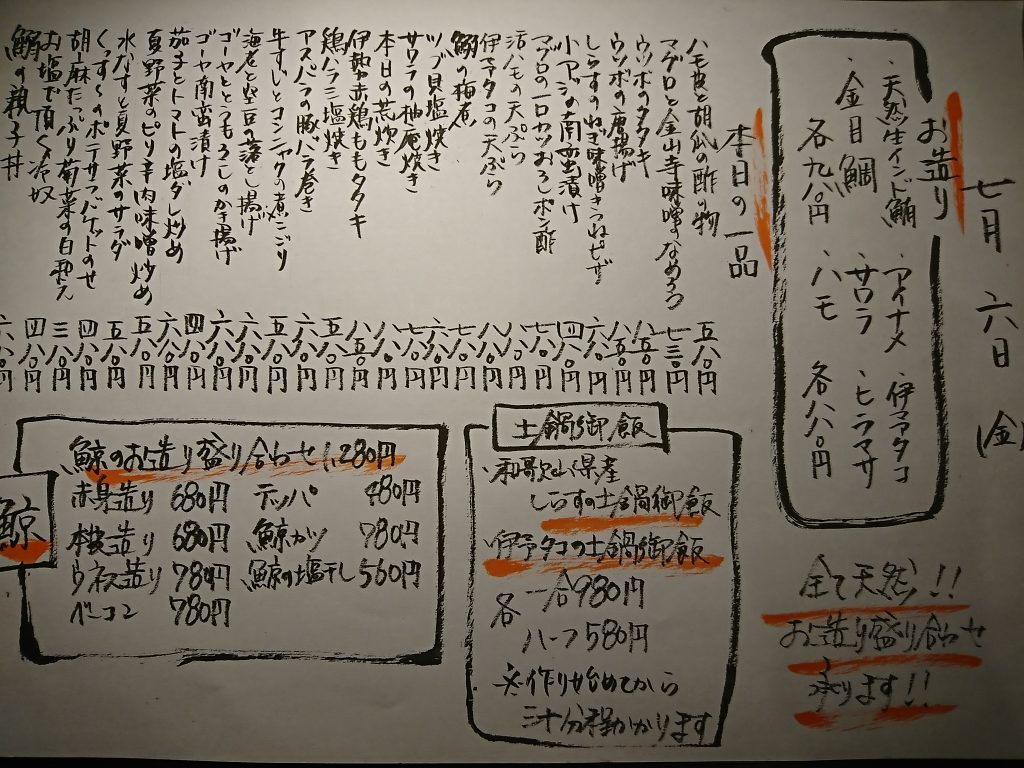 七月 六日 (金)
お造り
・天然生インド鮪 ・アイナメ ・伊予タコ
・金目鯛 ・サワラ ・ヒラマサ
各九八〇円 ・ハモ 各八八〇円
全て天然!!
お造り盛り合わせ
承ります!!
本日の一品
ハモ皮と胡瓜の酢の物 五八〇円
マグロと金山寺味噌なめろう 七三〇円
ウツボのタタキ 八五〇円
ウツボの唐揚げ 八五〇円
しらすのねぎ味噌きつねピザ 六八〇円
小アジの南蛮漬け 四八〇円
マグロの一口カツおろしポン酢 七八〇円
活ハモの天ぷら 八八〇円
伊予タコの天ぷら 八八〇円
鰯の梅煮 七八〇円
ツブ貝塩焼き 六八〇円
サワラの柚庵焼き 七八〇円
本日の荒炊き 八八〇円
伊勢赤鶏ももタタキ 八五〇円
鶏ハラミ塩焼き 五八〇円
アスパラの豚バラ巻き 六八〇円
牛すじとコンニャクの煮こごり 六八〇円
海老と空豆の落とし揚げ 六八〇円
ゴーヤととうもろこしのかき揚げ 六八〇円
ゴーヤ南蛮漬け 四八〇円
茄子とトマトの塩ダレ炒め 六八〇円
夏野菜のピリ辛肉味噌炒め 五八〇円
水なすと夏野菜のサラダ 五八〇円
くっす〜のポテサラバゲットのせ 四八〇円
胡麻たっぷり菊菜の白和え 四八〇円
お塩で頂く冷奴 三八〇円
鰯の親子丼 四八〇円
六八〇円
土鍋御飯
・和歌山県産
しらすの土鍋御飯
・伊予タコの土鍋御飯
各 一合980円
ハーフ580円
※作り始めてから
三十分程かかります
鯨
鯨のお造り盛り合わせ 1,280円
赤身造り 680円 テッパ 480円
本皮造り 680円 鯨カツ 780円
ウネス造り 780円 鯨の塩干し 560円
ベーコン 780円